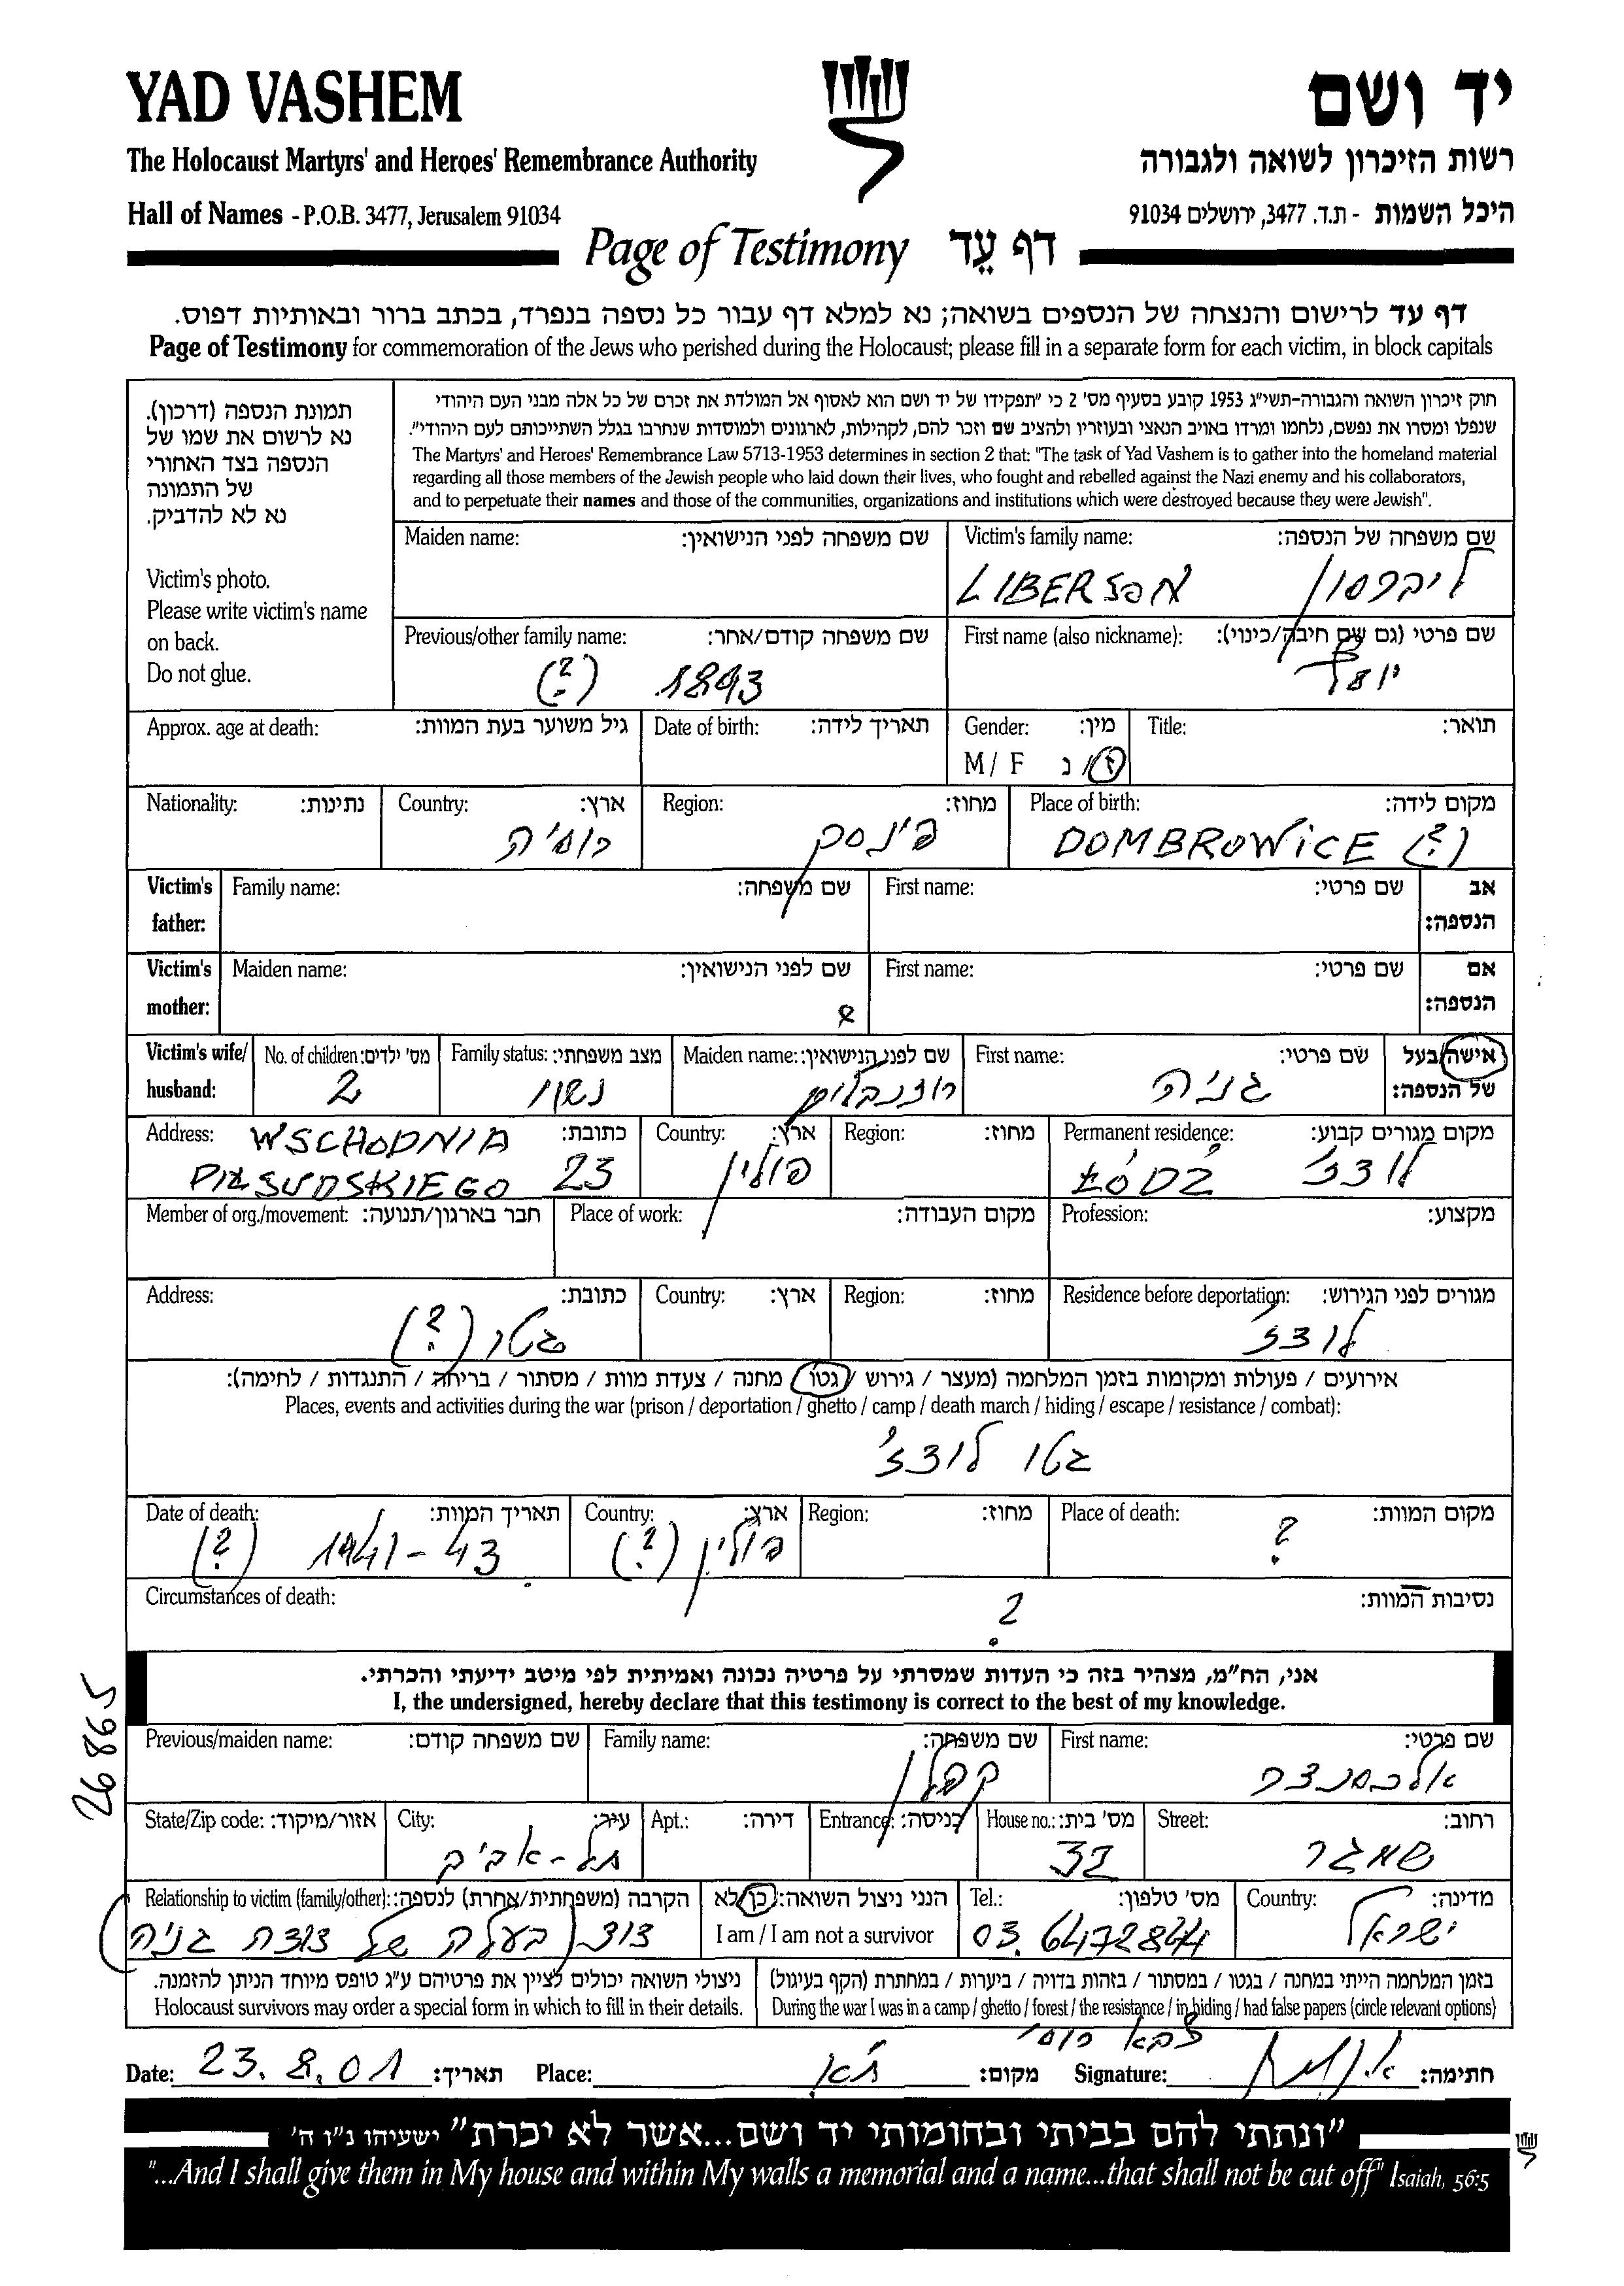 YAD VASHEM
יד ושם
The Holocaust Martyrs' and Heroes' Remembrance Authority
רשות הזיכרון לשואה ולגבורה
Hall of Names - P.O.B. 3477, Jerusalem 91034
היכל השמות - ת.ד. 3477, ירושלים 91034
Page of Testimony דף עֵד
דף עד לרישום והנצחה של הנספים בשואה; נא למלא דף עבור כל נספה בנפרד, בכתב ברור ובאותיות דפוס.
Page of Testimony for commemoration of the Jews who perished during the Holocaust; please fill in a separate form for each victim, in block capitals
תמונת הנספה (דרכון).
נא לרשום את שמו של
הנספה בצד האחורי
של התמונה
נא לא להדביק.
Victim's photo.
Please write victim's name
on back.
Do not glue.
חוק זיכרון השואה והגבורה-תשי"ג 1953 קובע בסעיף מס' 2 כי "תפקידו של יד ושם הוא לאסוף אל המולדת את זכרם של כל אלה מבני העם היהודי
שנפלו ומסרו את נפשם, נלחמו ומרדו באויב הנאצי ובעוזריו ולהציב שם וזכר להם, לקהילות, לארגונים ולמוסדות שנחרבו בגלל השתייכותם לעם היהודי".
The Martyrs' and Heroes' Remembrance Law 5713-1953 determines in section 2 that: "The task of Yad Vashem is to gather into the homeland material
regarding all those members of the Jewish people who laid down their lives, who fought and rebelled against the Nazi enemy and his collaborators,
and to perpetuate their names and those of the communities, organizations and institutions which were destroyed because they were Jewish".
Maiden name: שם משפחה לפני הנישואין: Victim's family name: שם משפחה של הנספה:
LIBERSON ליברסון
Previous/other family name: שם משפחה קודם/אחר: First name (also nickname): שם פרטי (גם שם חיבה/כינוי):
(?) 1893 יוסף
Approx. age at death: גיל משוער בעת המוות: Date of birth: תאריך לידה: Gender: מין: Title: תואר:
M / F ז/נ
Nationality: נתינות: Country: ארץ: Region: מחוז: Place of birth: מקום לידה:
רוסיה פינסק DOMBROWICE (?)
Victim's father: Family name: שם משפחה: First name: שם פרטי: אב הנספה:
Victim's mother: Maiden name: שם לפני הנישואין: First name: שם פרטי: אם הנספה:
Victim's wife/ husband: No. of children: מס' ילדים: Family status: מצב משפחתי: Maiden name: שם לפני הנישואין: First name: שם פרטי: אישה/בעל של הנספה:
2 נשוי רוזנבלום גניה
Address: כתובת: Country: ארץ: Region: מחוז: Permanent residence: מקום מגורים קבוע:
WSCHODNIA
PIŁSUDSKIEGO 23 פולין ŁÓDŹ לודז'
Member of org./movement: חבר בארגון/תנועה: Place of work: מקום העבודה: Profession: מקצוע:
Address: כתובת: Country: ארץ: Region: מחוז: Residence before deportation: מגורים לפני הגירוש:
גטו (?) לודז'
אירועים / פעולות ומקומות בזמן המלחמה (מעצר / גירוש / גטו / מחנה / צעדת מוות / מסתור / בריחה / התנגדות / לחימה):
Places, events and activities during the war (prison / deportation / ghetto / camp / death march / hiding / escape / resistance / combat):
גטו לודז'
Date of death: תאריך המוות: Country: ארץ: Region: מחוז: Place of death: מקום המוות:
(?) 1941-43 פולין (?) ?
Circumstances of death: נסיבות המוות:
?
אני, הח"מ, מצהיר בזה כי העדות שמסרתי על פרטיה נכונה ואמיתית לפי מיטב ידיעתי והכרתי.
I, the undersigned, hereby declare that this testimony is correct to the best of my knowledge.
26865
Previous/maiden name: שם משפחה קודם: Family name: שם משפחה: First name: שם פרטי:
קפלן אלכסנדר
State/Zip code: אזור/מיקוד: City: עיר: Apt.: דירה: Entrance: כניסה: House no.: מס' בית: Street: רחוב:
תל-אביב 32 שמגר
Relationship to victim (family/other): הקרבה (משפחתית/אחרת) לנספה: הנני ניצול השואה: כן/לא Tel.: מס' טלפון: Country: מדינה:
דוד (בעלה של דודה גניה) I am / I am not a survivor 03.6472844 ישראל
ניצולי השואה יכולים לציין את פרטיהם ע"ג טופס מיוחד הניתן להזמנה.
Holocaust survivors may order a special form in which to fill in their details.
בזמן המלחמה הייתי במחנה / בגטו / במסתור / בזהות בדויה / ביערות / במחתרת (הקף בעיגול)
During the war I was in a camp / ghetto / forest / the resistance / in hiding / had false papers (circle relevant options)
צבא רוסי
Date: 23.8.01 תאריך: Place: ת"א מקום: Signature: חתימה:
"ונתתי להם בביתי ובחומותי יד ושם...אשר לא יכרת" ישעיהו נ"ו ה'
"...And I shall give them in My house and within My walls a memorial and a name...that shall not be cut off" Isaiah, 56:5